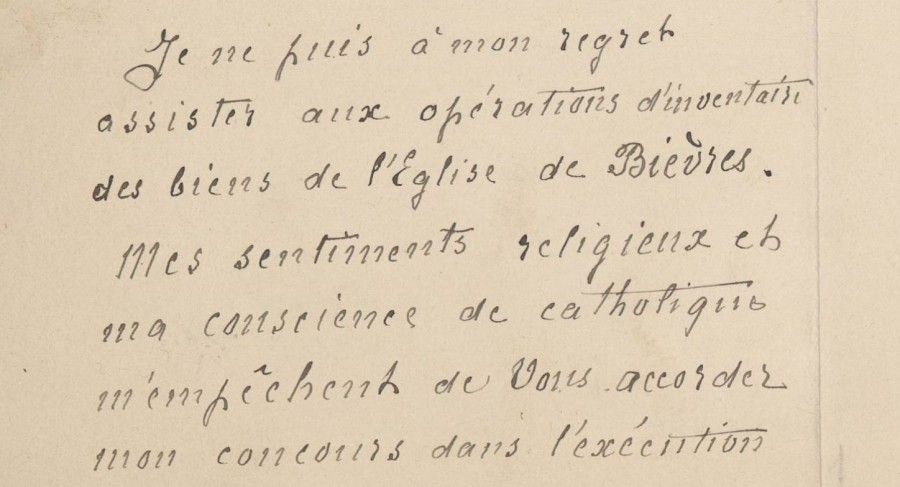 Je ne puis à mon regret
assister aux opérations d'inventaire
des biens de l'Eglise de Bièvres.
Mes sentiments religieux et
ma conscience de catholique
m'empêchent de Vous accorder
mon concours dans l'exécution